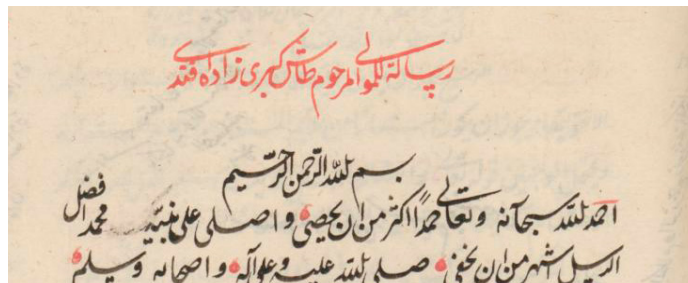 رسالة للمولى المرحوم طاش كبرى زاده افندى
بسم الله الرحمن الرحيم
احمد لله سبحانه وتعالى حمدا اكثر من ان يحصى واصلى على نبيه محمد افضل
الرسل اشهر من ان يخفى صلى الله عليه وعلى آله واصحابه وسلم